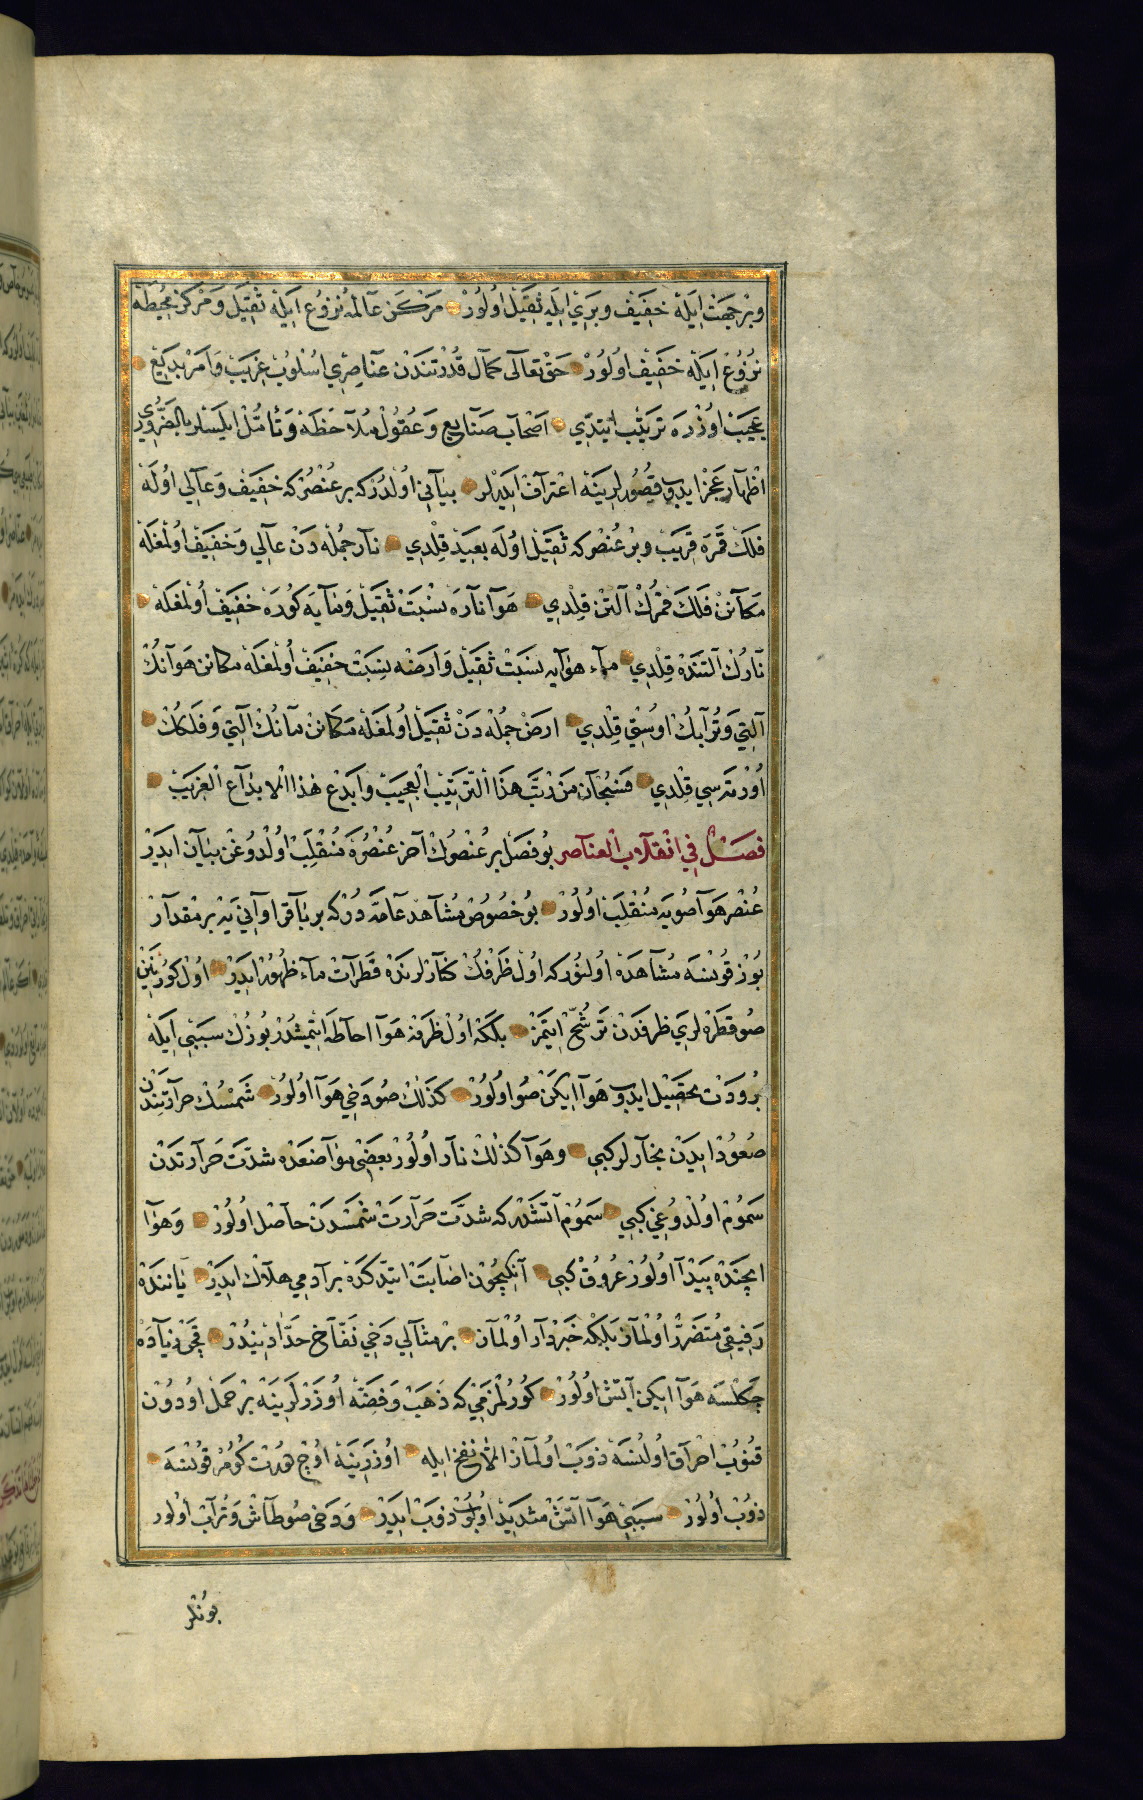 وبر جهت ایله خفیف وبری ایله ثقیل اولور مرکز عالمه نزوع ایله ثقیل ومرکز محیطه
نزوع ایله خفیف اولور حق تعالی کمال قدرتندن عناصری اسلوب غریب وامر بدیع
عجیب اوزره ترتیب ایتدی اصحاب صنایع وعقول ملاحظه وتأمل ایلیسلر بالضروری
اظهار عجز ایدوب قصورلرینه اعتراف ایدرلر بیانی اولدرکه بر عنصرکه خفیف وعالی اوله
فلك قمره قریب وبر عنصرکه ثقیل اوله بعید قلدی نار جمله دن عالی وخفیف اولمغله
مکانن فلك قمرك آلتن قلدی هوا ناره نسبت ثقیل ومایه کوره خفیف اولمغله
نارك آلتنده قلدی ماء هوایه نسبت ثقیل وارضه نسبت خفیف اولمغله مکانن هوانك
آلتی وترابك اوستی قلدی ارض جمله دن ثقیل اولمغله مکانن مانك آلتی وفلكك
اورته سی قلدی فسبحان من رتب هذا الترتیب العجیب وابدع هذا الابداع الغریب
فصل فی انقلاب العناصر بو فصل بر عنصرك آخر عنصره منقلب اولدوغن بیان ایدر
عنصر هوا صویه منقلب اولور بو خصوص مشاهد عامه درکه بر باقر اوانی یه بر مقدار
بوز قونسه مشاهده اولنورکه اول ظرفك کنارلرنده قطرات ماء ظهور ایدر اول کورینن
صو قطره لری ظرفدن ترشح ایتمز بلکه اول ظرفه هوا احاطه ایتمیشدر بوزك سببی ایله
برودت تحصیل ایدوب هوا ایکن صو اولور کذلك صو دخی هوا اولور شمسك حرارتندن
صعود ایدن بخارلر کبی وهوا کذلك نار اولور بعضی مواضعده شدت حرارتدن
سموم اولدوغی کبی سموم آتشدرکه شدت حرارت شمسدن حاصل اولور وهوا
ایچنده پیدا اولور عروق کبی آنكچون اصابت ایتدکده بر آدمی هلاك ایدر یاننده
رفیقی متضرر اولماز بلکه خبردار اولماز بر مثالی دخی نفاخ حدادیندر قچن زیاده
چکلسه هوا ایکن آتش اولور کورلمزمی که ذهب وفضه اوزرلرینه بر حمل اودون
قنوب احراق اولنسه ذوب اولماز الا نفخ ایله اوزرینه اوچ درت کومر قونسه
ذوب اولور سببی هوا آتش شدید اولوب ذوب ایدر ودخی صو طاش وتراب اولور
بونلر